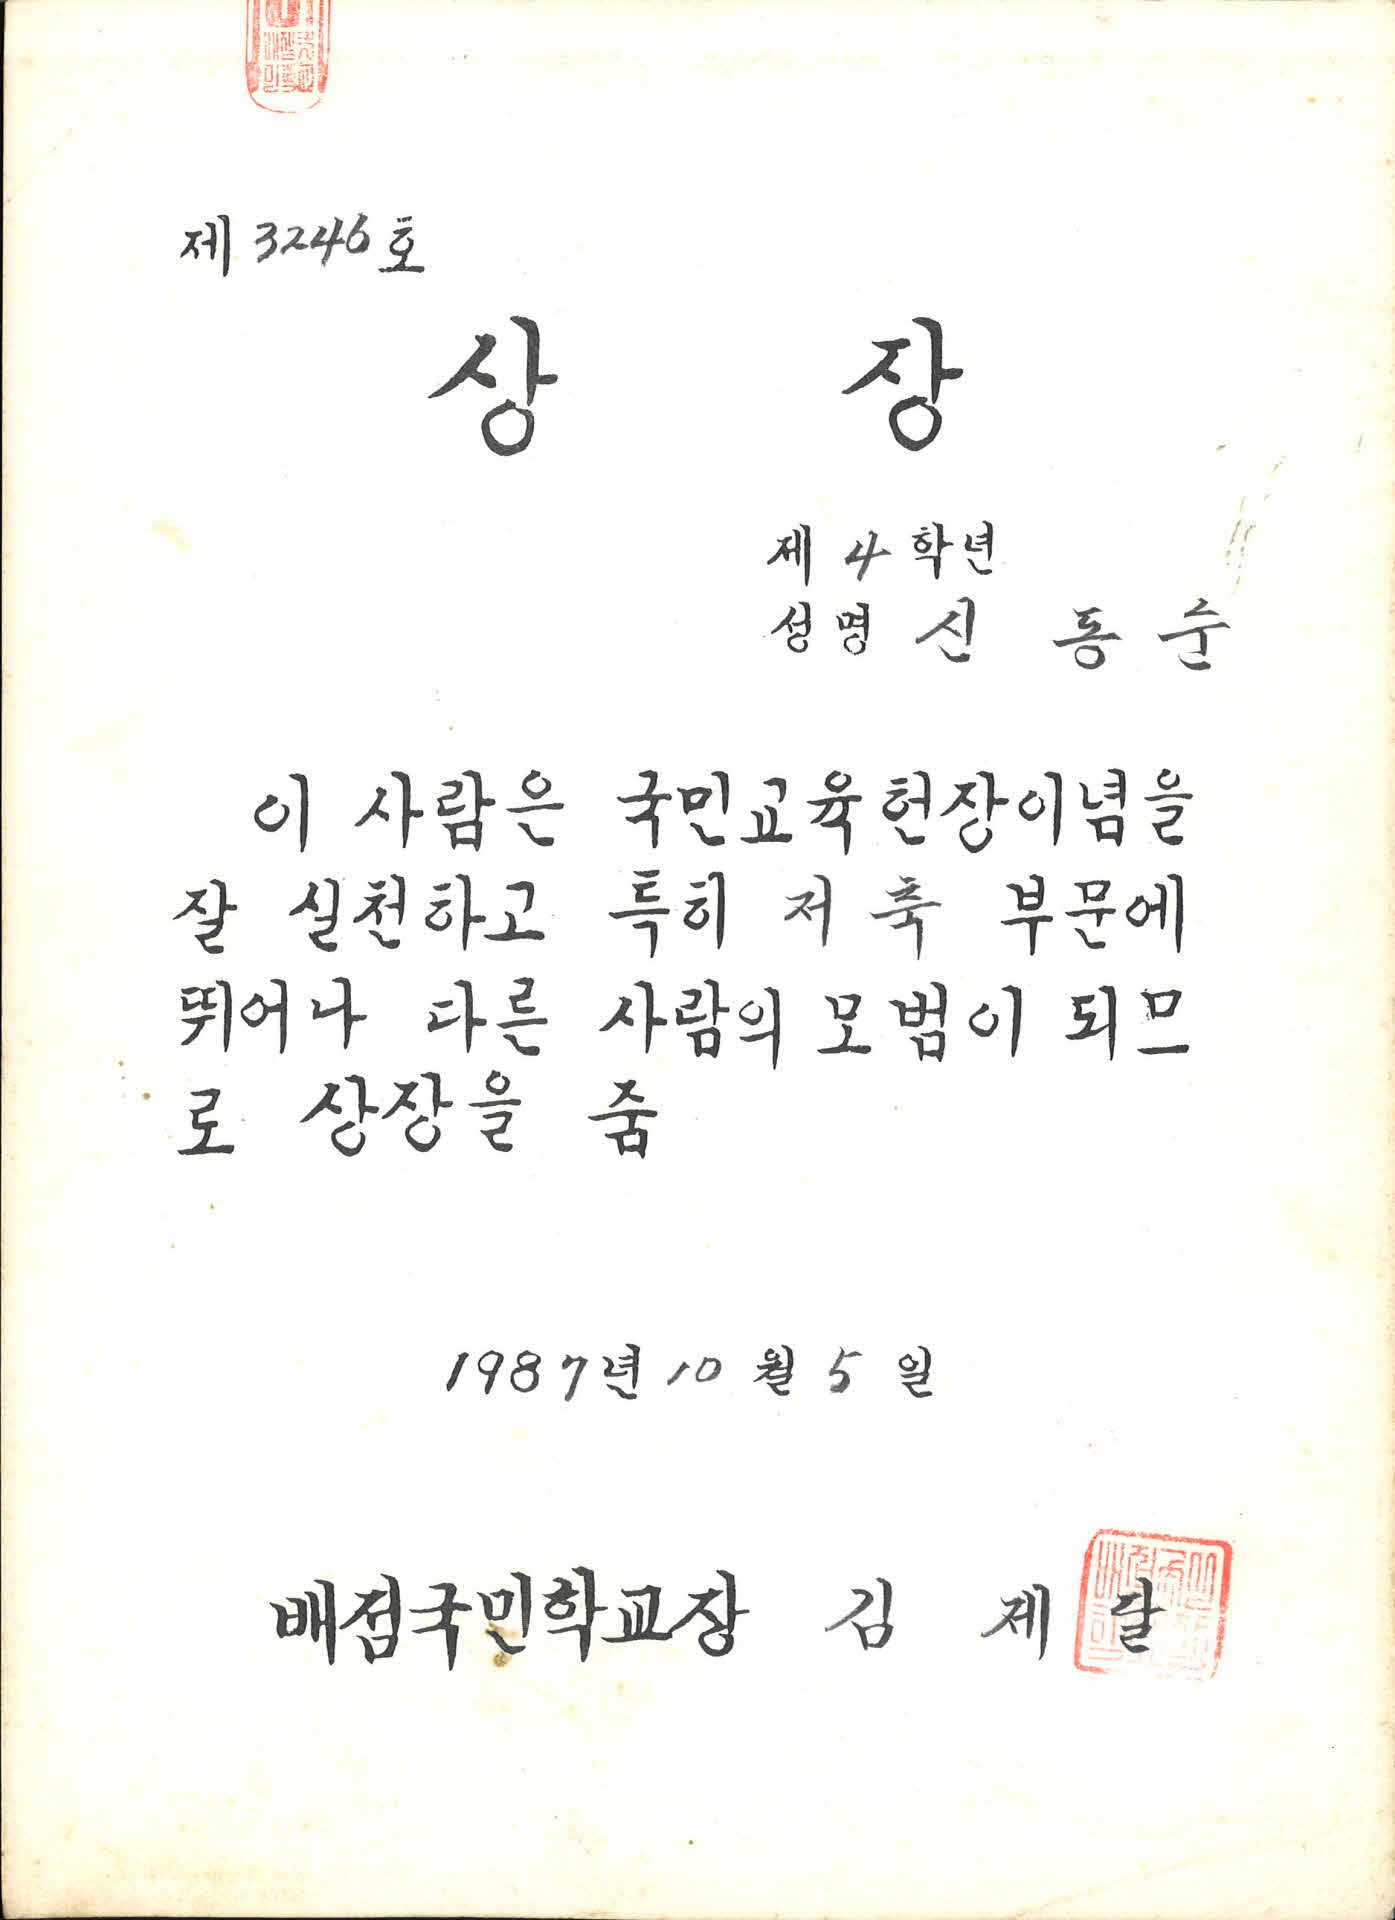 제 3246 호
상 장
제 4 학년
성명 신 동 순
이 사람은 국민교육헌장이념을
잘 실천하고 특히 저축 부문에
뛰어나 다른 사람의 모범이 되므
로 상장을 줌
1987년 10월 5일
배점국민학교장 김 제 달